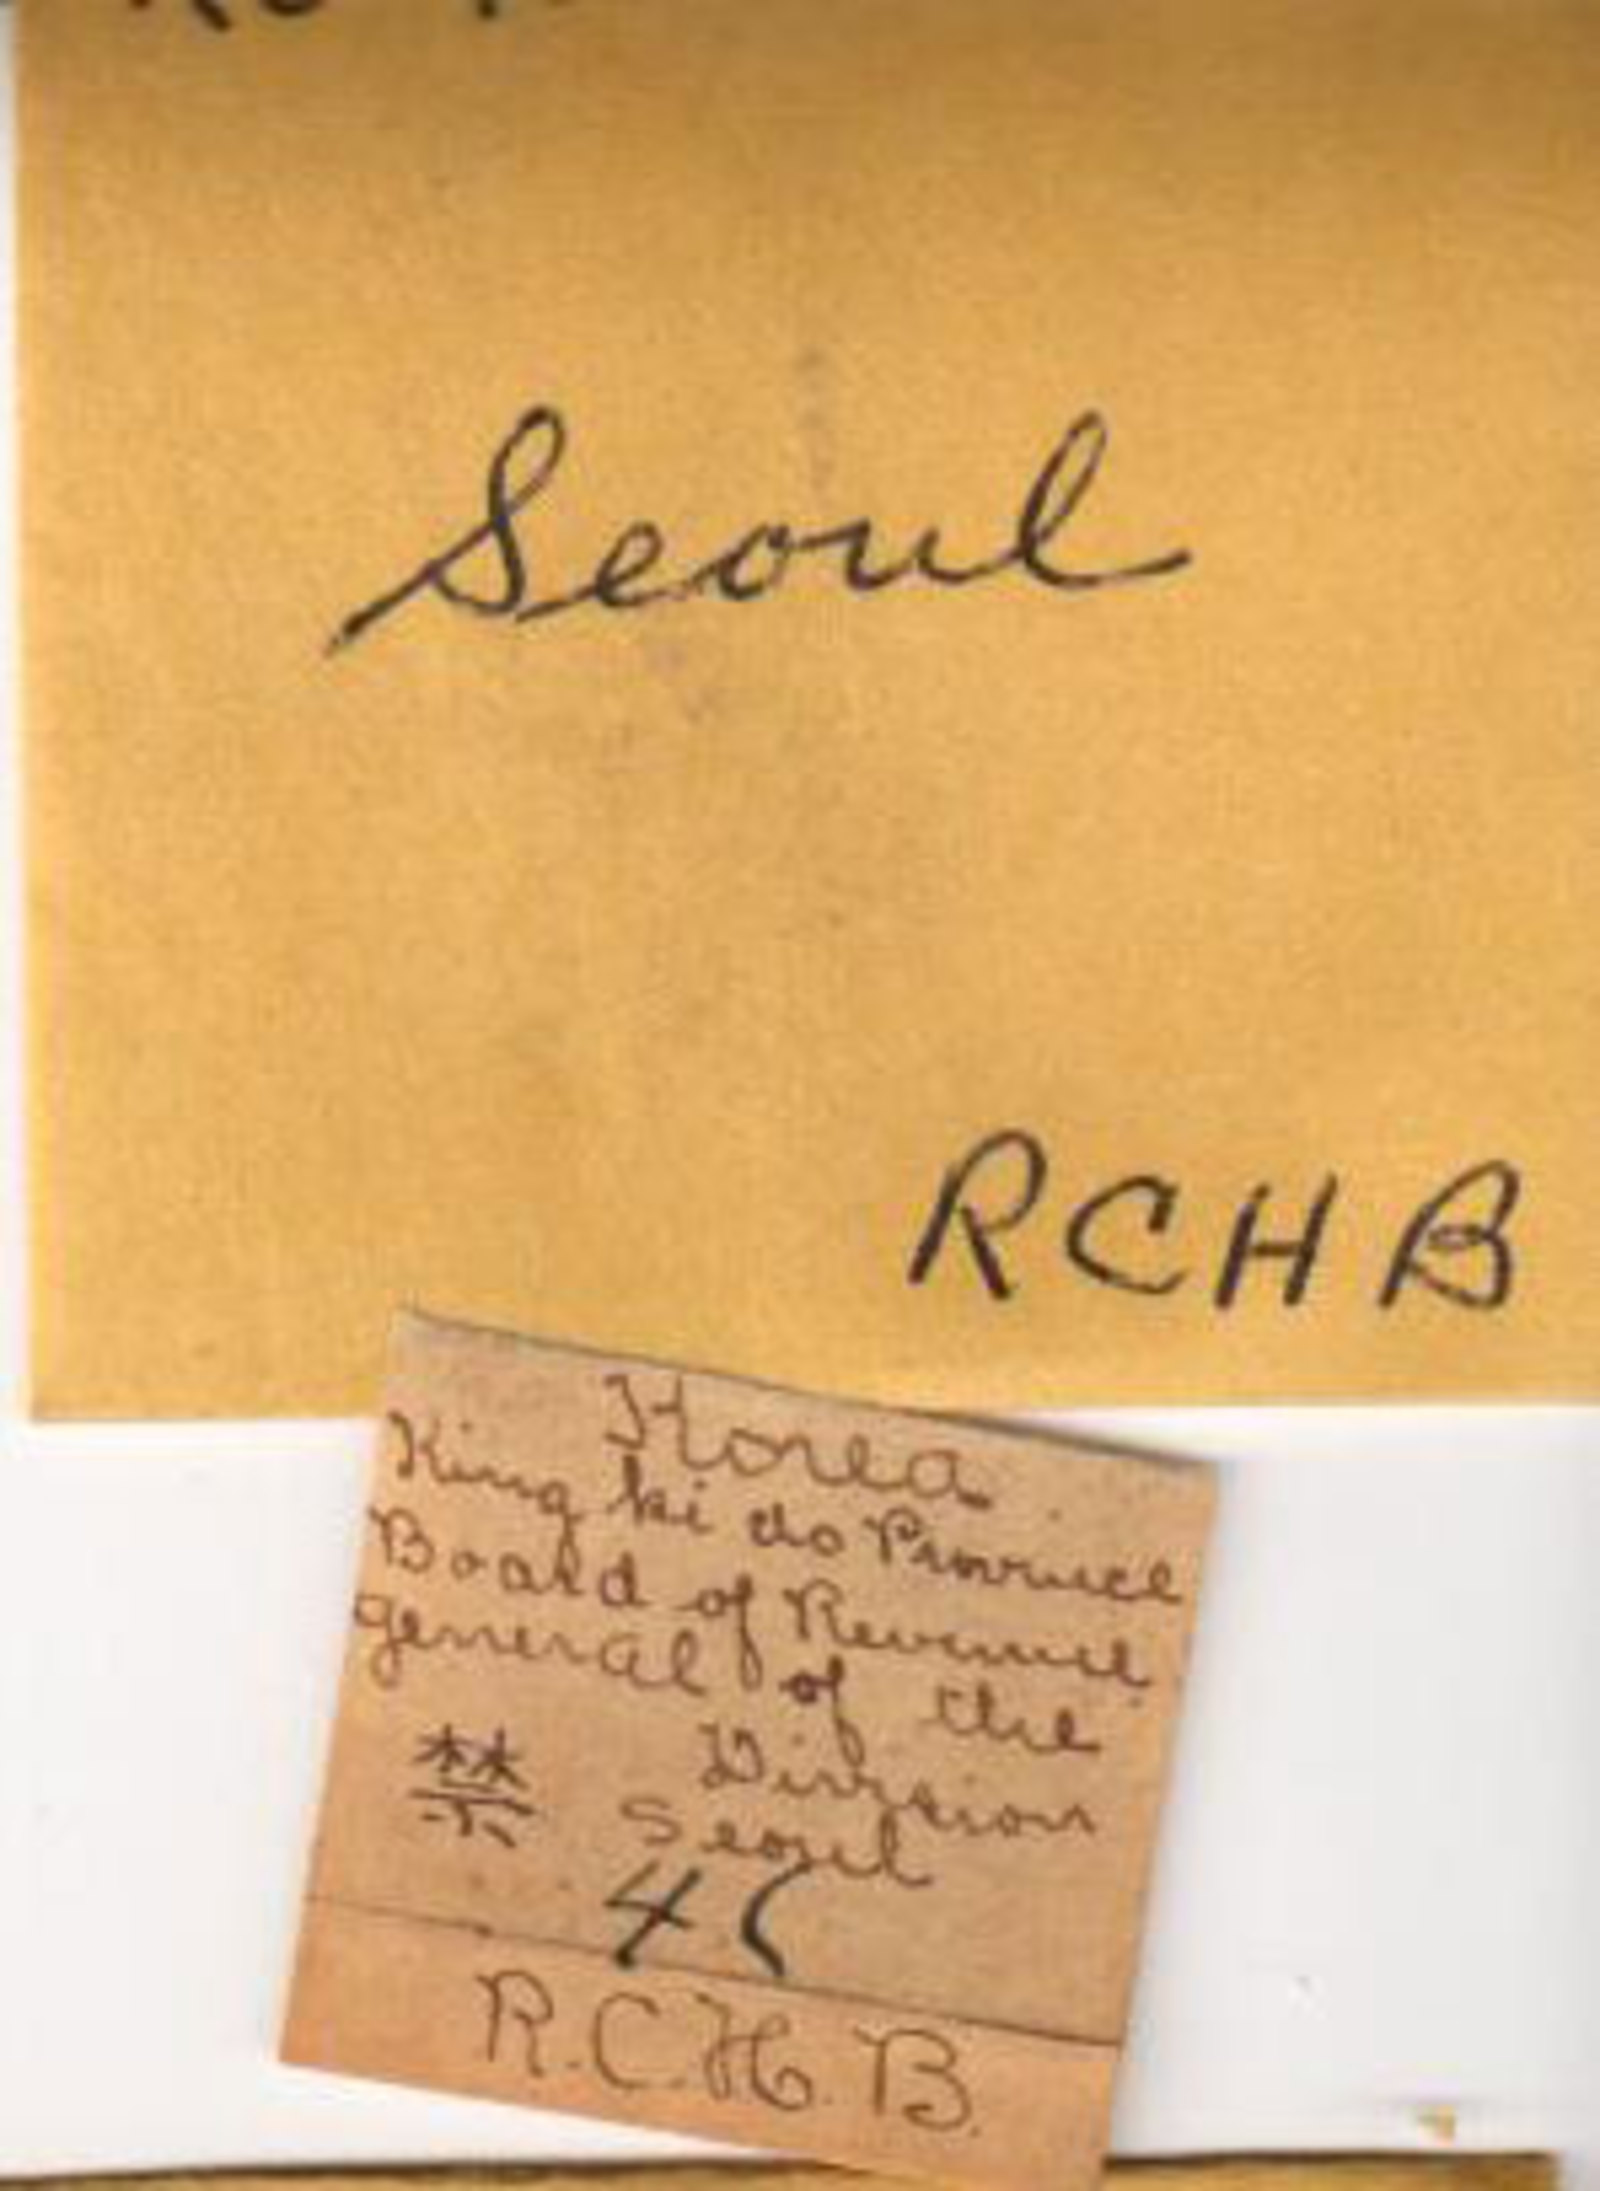 Seoul
RCHB
Korea
King ki do Province
Board of Revenue
general of the
Division
禁 Seoul
4
R.C.H.B.